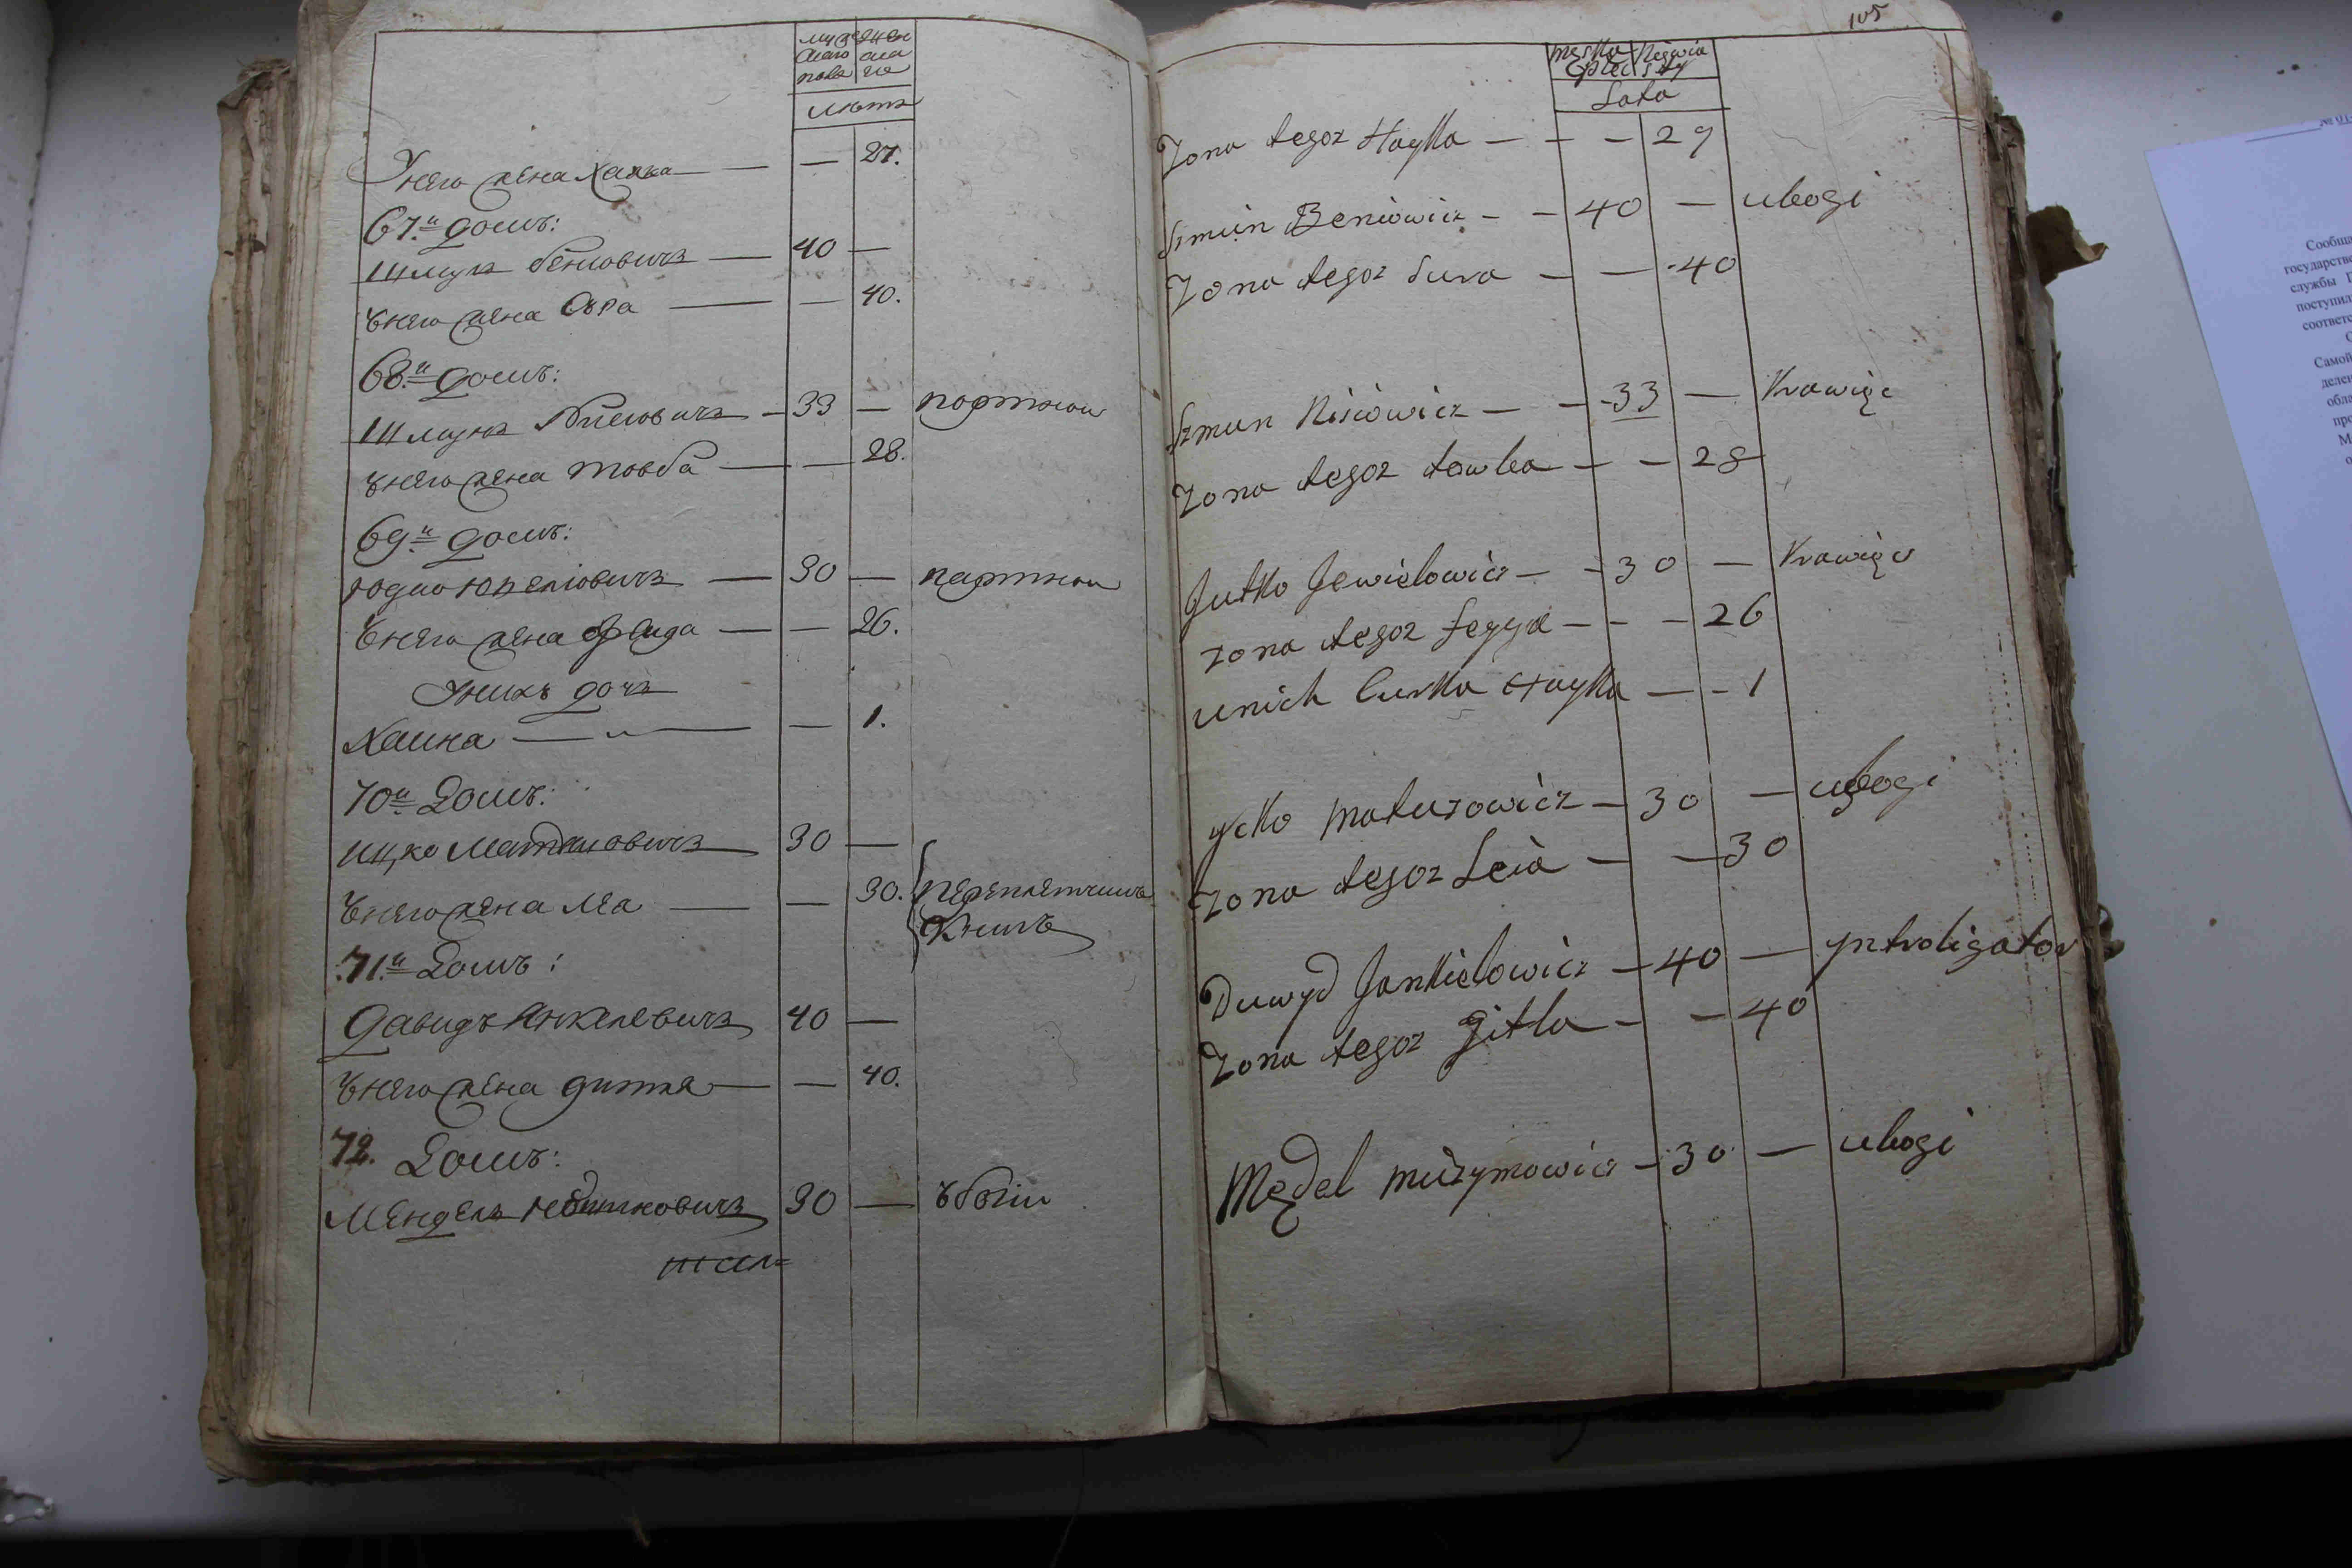 мужескаго пола женскаго
лѣтъ
У него жена Хаика — — 27.
67.й домъ:
Шмунъ Беніовичъ — 40 —
ънего жена Сора — — 40.
68.й домъ:
Шмунъ — 33 — портнои
ънего жена товба — — 28.
69.й домъ:
юдко — 30 — партнои
ънего жена фейда — — 26.
Унихъ дочь
Хаика — — 1.
70й Домъ:
Ицко Матусовичъ 30 —
ънего жена Леа — — 30. переплетчикъ
Книгъ
71.й Домъ:
Давидъ Янкелевичъ 40 —
ънего жена гитля — — 40.
72. Домъ:
Мендель 30 — ъбогіи
105
męska płeć Niewia sty
Lata
Zona tegoz Hayka — — — 29
Smuin Beniowicz — — 40 — ubogi
Zona tegoz Sura — — 40
Szmun Nisiowicz — — 33 — Krawięc
Zona tegoz towba — — 28
Jutko Jewielowicz — — 30 — Krawięc
zona tegoz fegga — — — 26
unich Curka Hayka — — 1
ycko Matusowicz — 30 — ubogi
Zona tegoz Leia — — 30
Duwyd Jankielowicz — 40 — yntroligator
Zona tegoz gitla — — 40
Mędel — 30 — ubogi
Сообща
государстве
службы
поступил
соответс
Самой
делен
обла
про